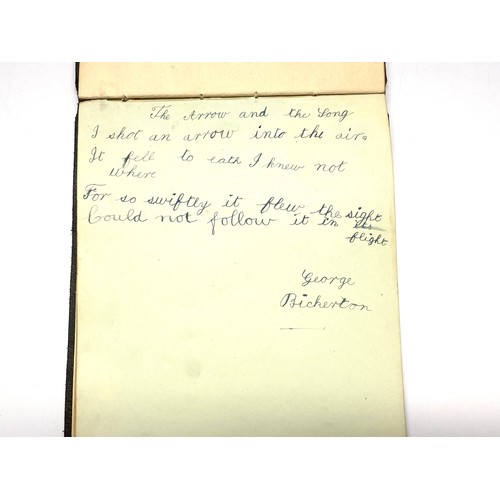 The Arrow and the Song
I shot an arrow into the air.
It fell to eath I knew not
where
For so swiftly it flew the sight
Could not follow it in its
flight
George
Bickerton